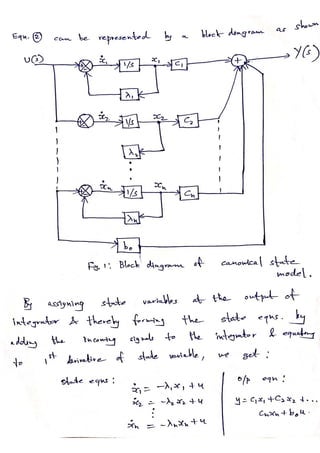 Eqn. ② can be represented by a block diagram as shown
U(s) ẋ₁ 1/s x₁ C₁ + Y(s)
λ₁
ẋ₂ 1/s x₂ C₂
λ₂
ẋn 1/s xn Cn
λn
b₀
Fig. 1: Block diagram of canonical state
model.
By assigning state variables at the output of
integrator & thereby forming the state eqns. by
adding the incoming signals to the integrator & equating
to 1st derivative of state variable, we get:
state eqns: ẋ₁ = -λ₁x₁ + u o/p eqn:
ẋ₂ = -λ₂x₂ + u y = C₁x₁ + C₂x₂ + ...
ẋn = -λnxn + u Cnxn + b₀u.